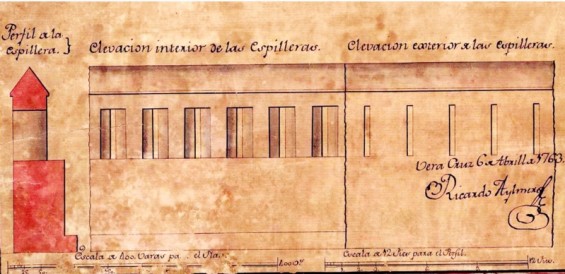 Perfil a la
Espillera.
Elevacion interior de las Espilleras.
Elevacion exterior a las Espilleras.
Vera Cruz 6 de Abril de 1763.
Ricardo Aylmer
Escala a 400 Varas pa el
Escala a 12 Pies para el Perfil.